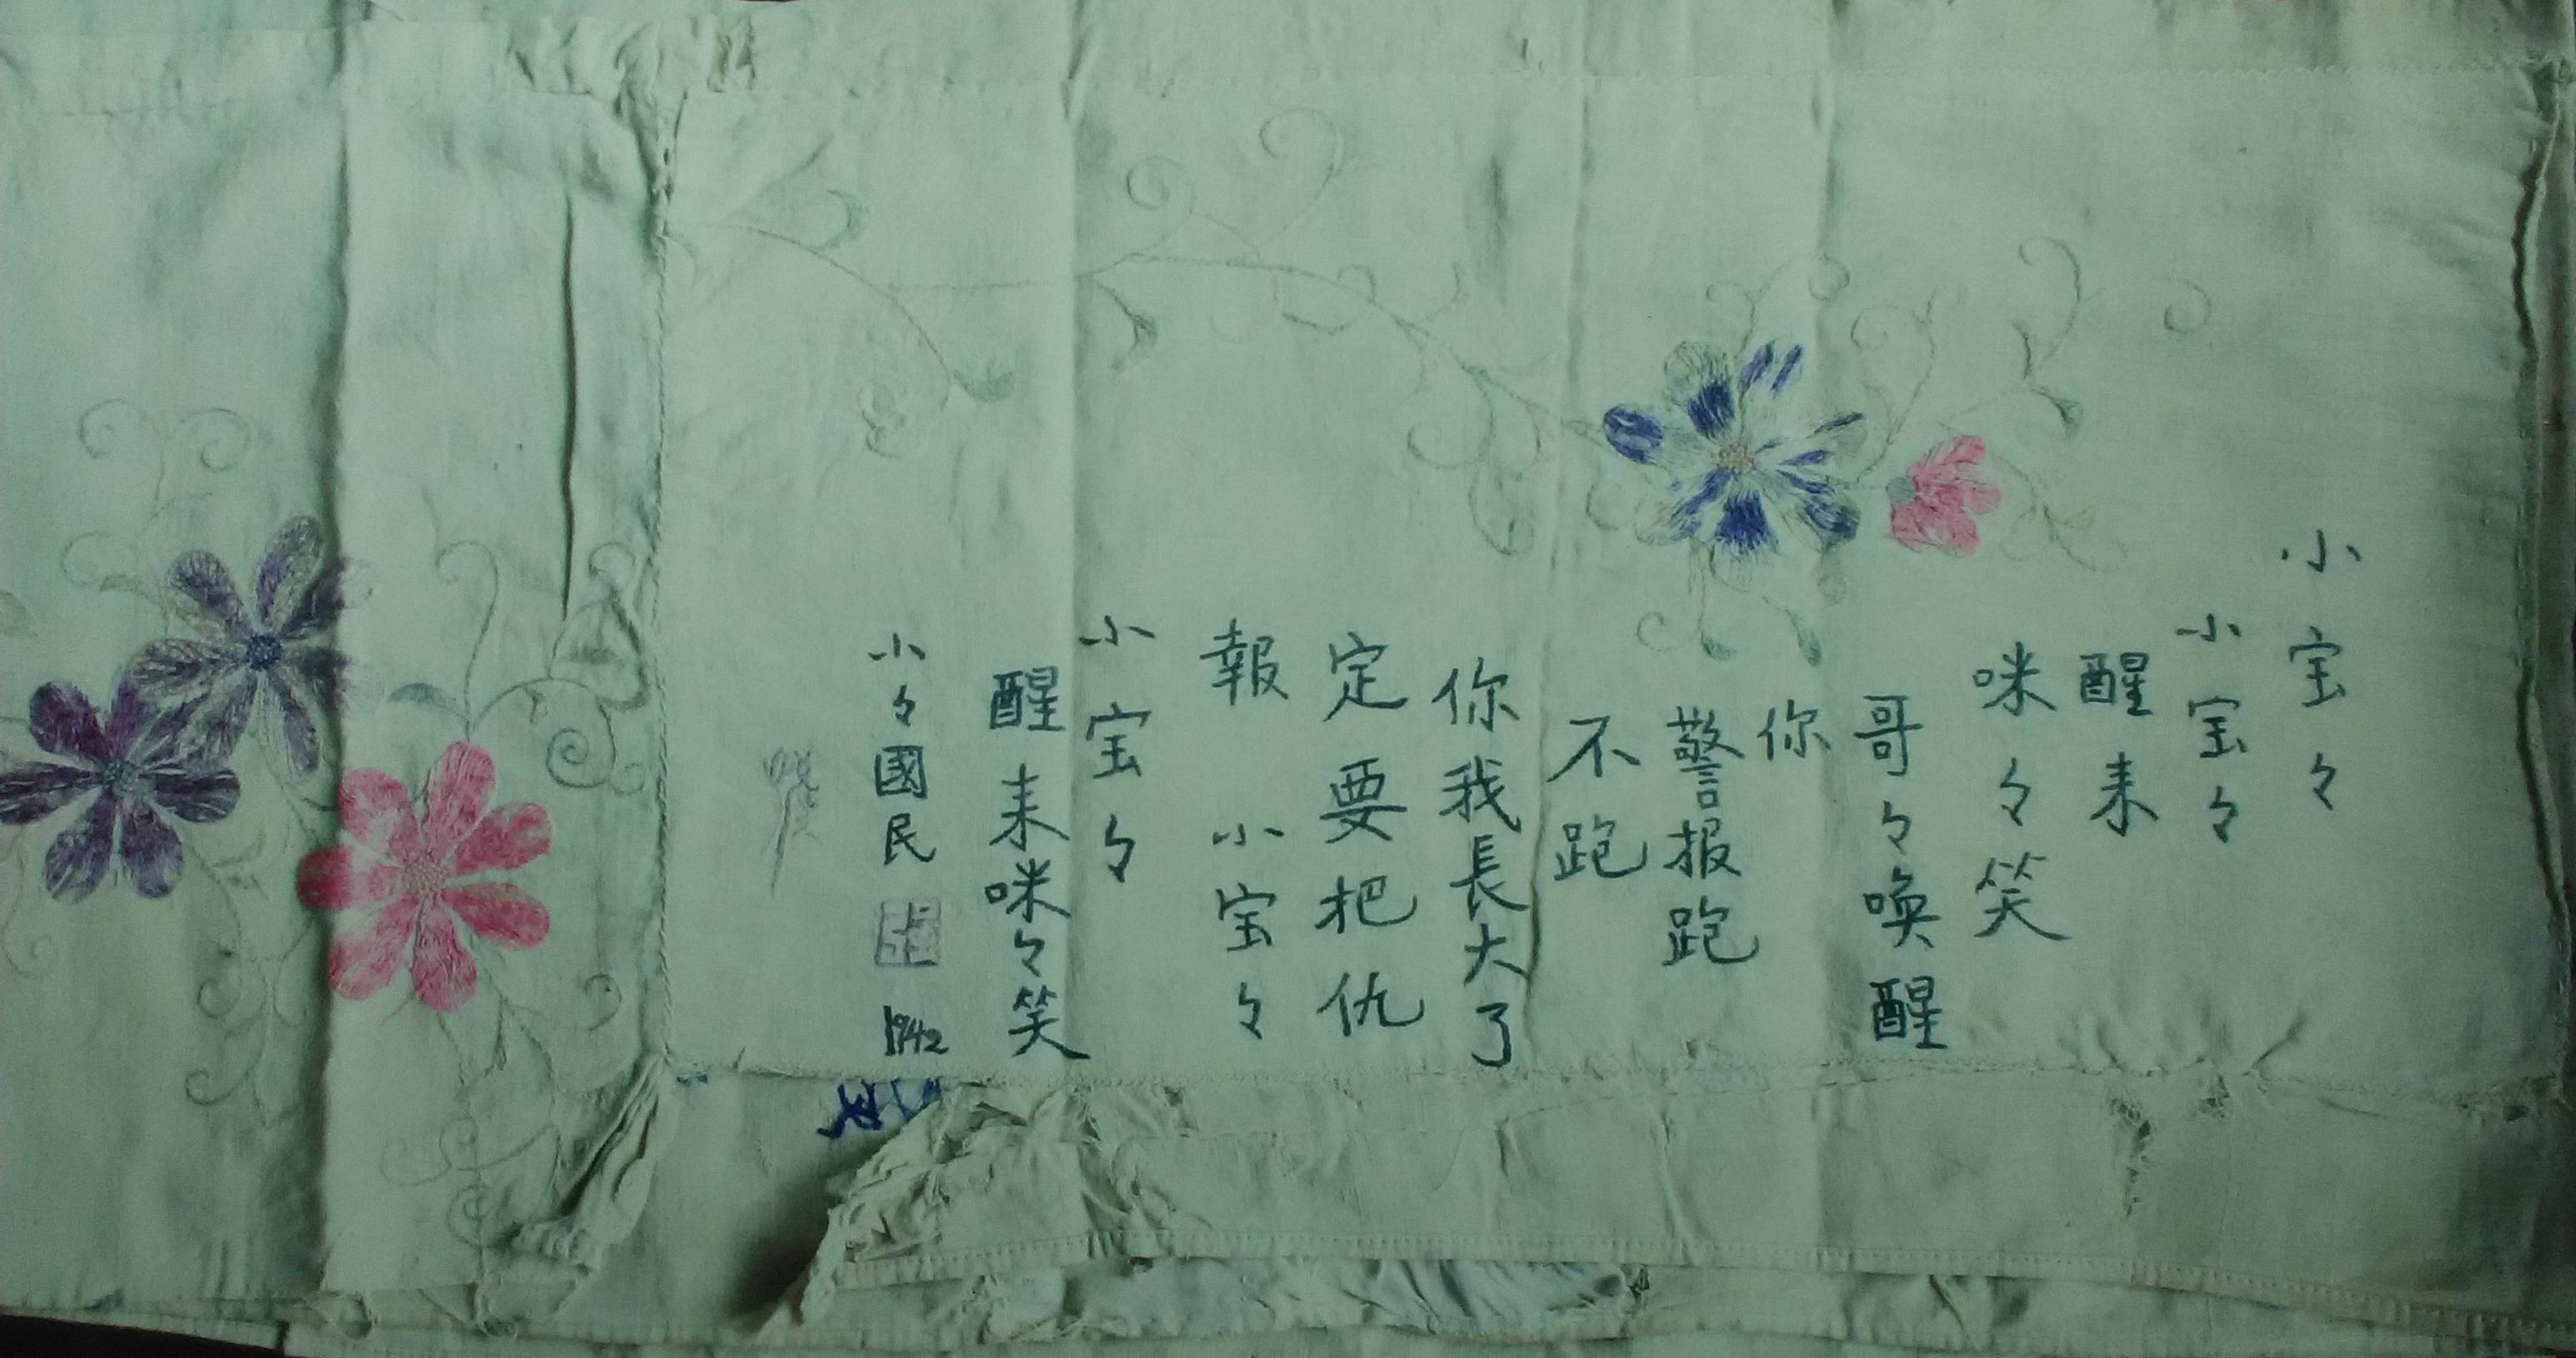 小宝々
小宝々
醒来
咪々笑
哥々喚醒
你
警报跑
不跑
你我長大了
定要把仇
報 小宝々
小宝々
醒来咪々笑
小々國民
1942